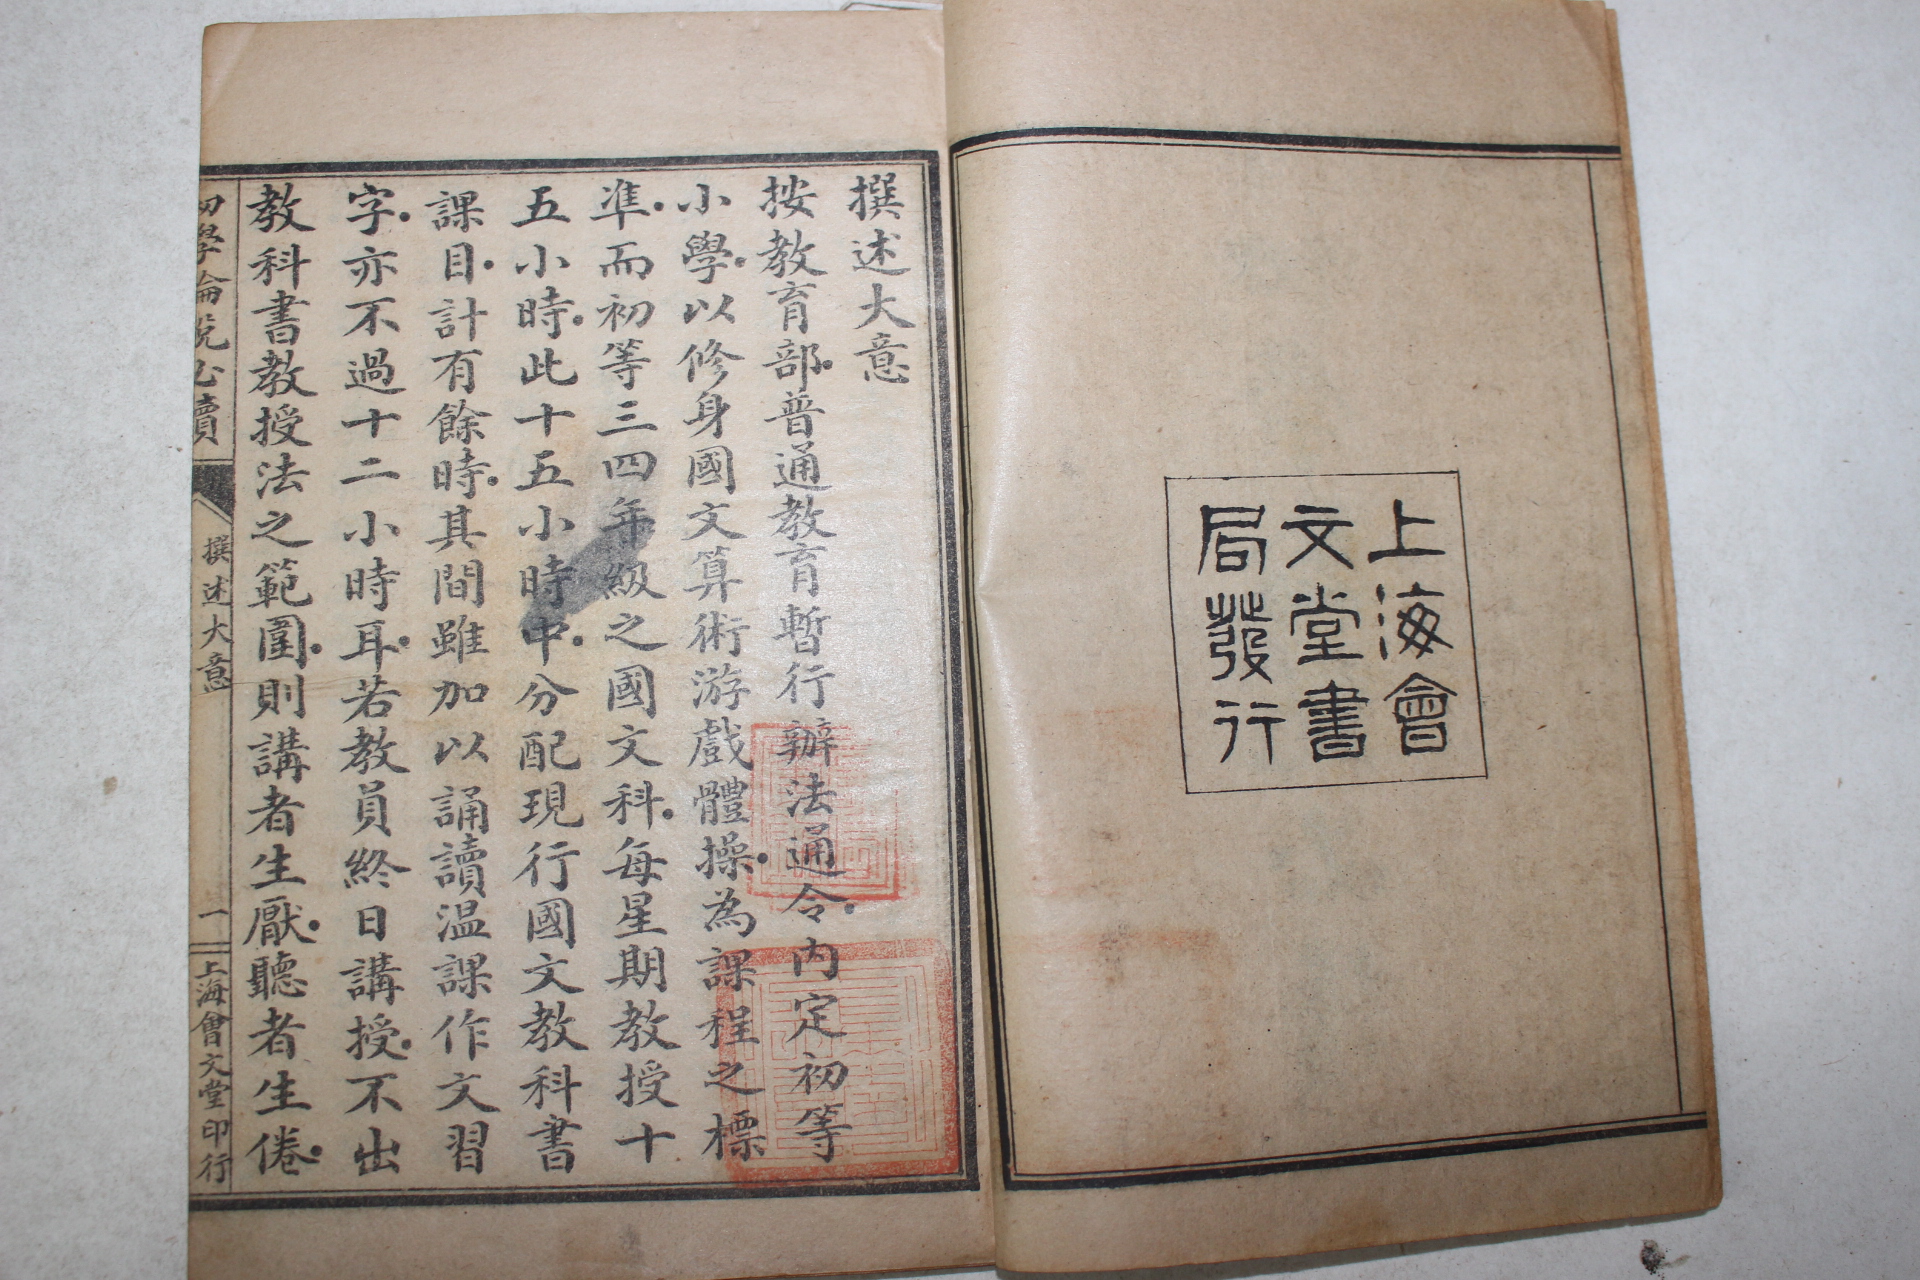 上海會
文堂書
局發行
撰述大意
按教育部普通教育暫行辦法通令内定初等
小學以修身國文算術游戲體操為課程之標
準而初等三四年級之國文科每星期教授十
五小時此十五小時中分配現行國文教科書
課目計有餘時其間雖加以誦讀温課作文習
字亦不過十二小時耳若教員終日講授不出
教科書教授法之範圍則講者生厭聽者生倦
初學論說必讀
撰述大意
一
上海會文堂印行